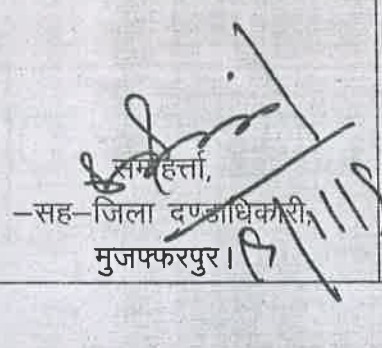 समाहर्त्ता,
-सह-जिला दण्डाधिकारी,
मुजफ्फरपुर।